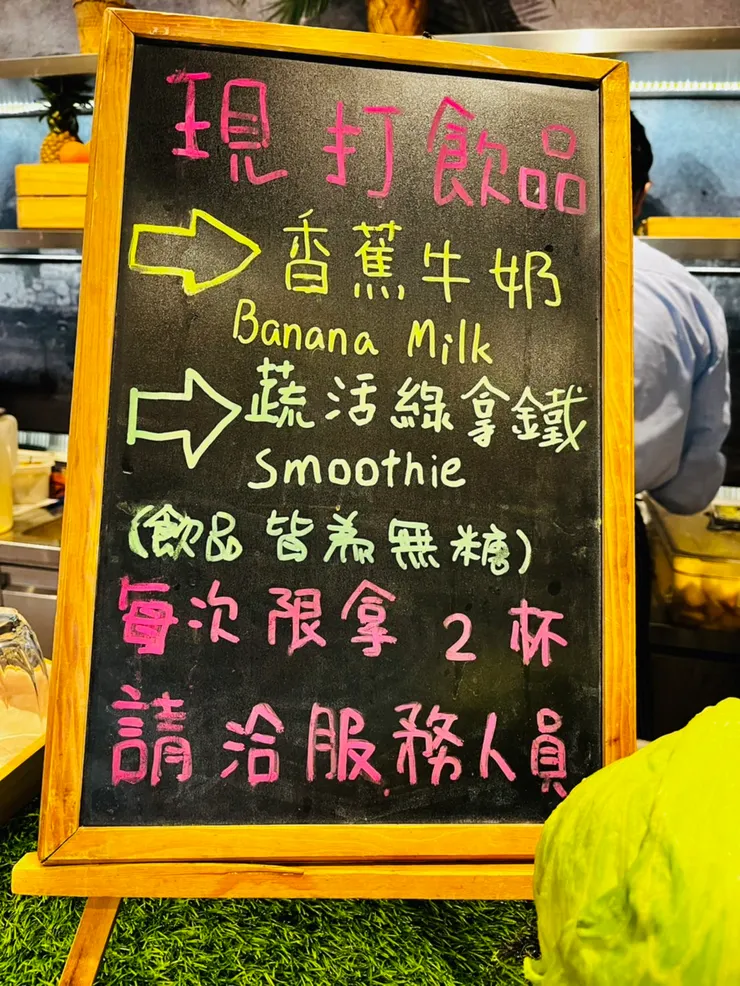 現打飲品
香蕉牛奶
Banana Milk
蔬活綠拿鐵
Smoothie
(飲品皆為無糖)
每次限拿2杯
請洽服務人員